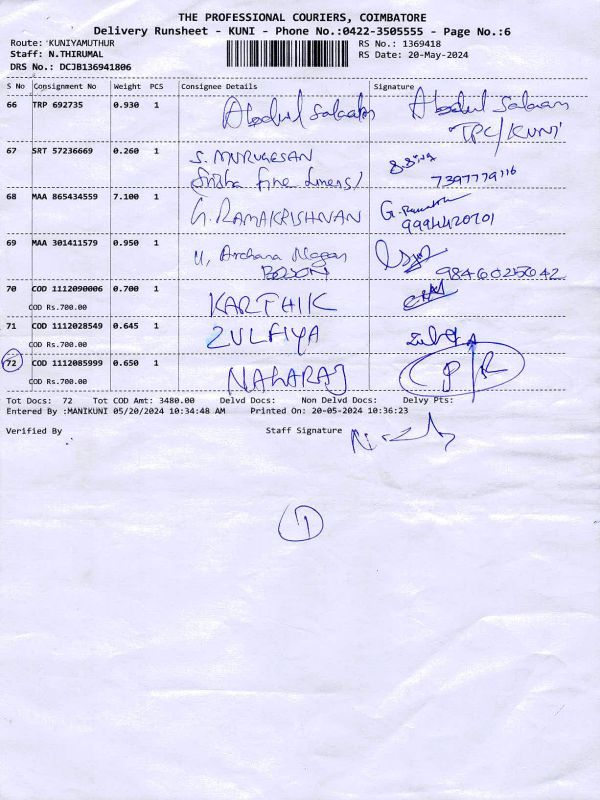 THE PROFESSIONAL COURIERS, COIMBATORE
Delivery Runsheet - KUNI - Phone No.:0422-3505555 - Page No.:6
Route: KUNIYAMUTHUR RS No.: 1369418
Staff: N.THIRUMAL RS Date: 20-May-2024
DRS No.: DCJB136941806
S No Consignment No Weight PCS Consignee Details Signature
66 TRP 692735 0.930 1 Abdul Salaam Abdul Salaam
TPC/KUNI
67 SRT 57236669 0.260 1 S. MURUGESAN
7397779116
68 MAA 865434559 7.100 1 G. RAMAKRISHNAN G.
9994420701
69 MAA 301411579 0.950 1 11, Archana Nagar
98460256042
70 COD 1112090006 0.700 1 KARTHIK
COD Rs.700.00
71 COD 1112028549 0.645 1 ZULFIYA
COD Rs.700.00
72 COD 1112085999 0.650 1 NAGARAJ P/R
COD Rs.700.00
Tot Docs: 72 Tot COD Amt: 3480.00 Delvd Docs: Non Delvd Docs: Delvy Pts:
Entered By :MANIKUNI 05/20/2024 10:34:48 AM Printed On: 20-05-2024 10:36:23
Verified By Staff Signature
1